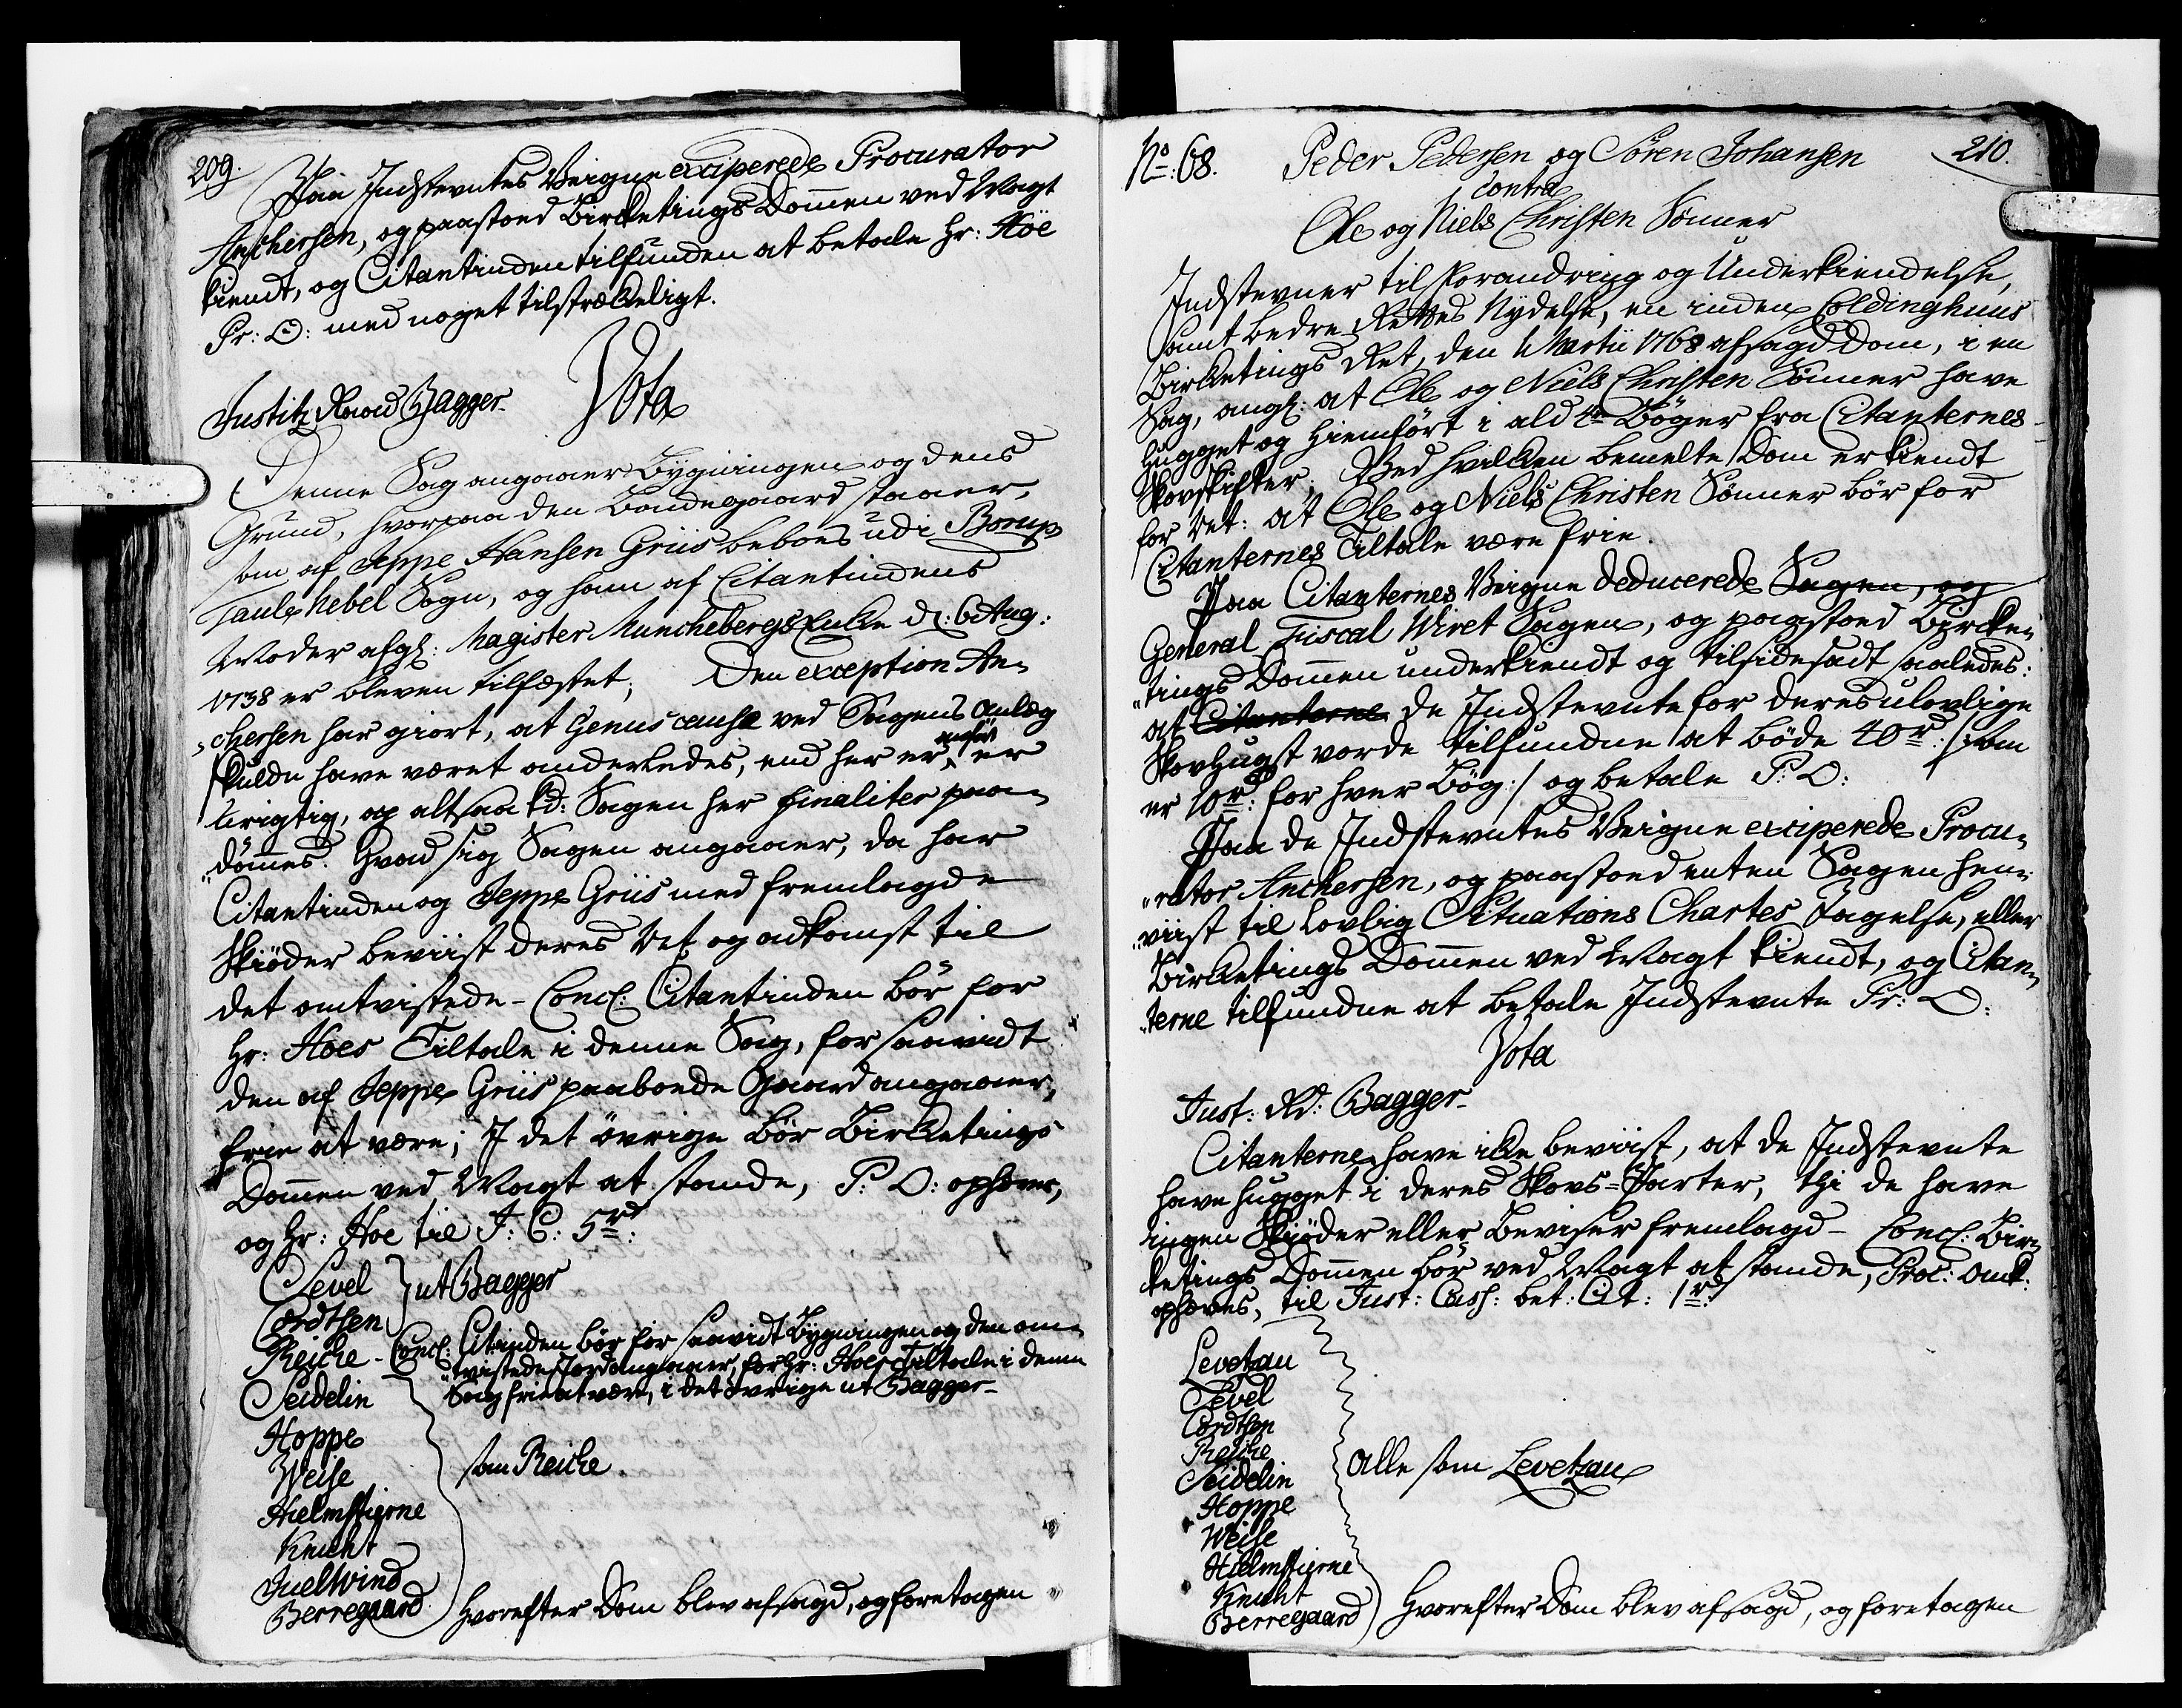 209.
Paa Indstevntes Veigne exciperede Procurator
Anchersen, og paastoed Birketings Dom̄en ved Magt
kiendt, og Citantinden tilfunden at betale Hr: Höe
Pr: O: med noget tilstrækkeligt.
Vota
Justitz Raad Bagger.
Denne Sag angaaer Bygningen og dens
Grund, hvorpaa den Bondegaard staaer,
som af Jeppe Hansen Griis beboes udi Borup
Taulf Nebel Sogn, og ham af Citantindens
Moder afg: Magister Munchebergs Enke d: 6 Aug:
1738 er bleven tilfæstet; Den exception An-
chersen har giort, at Genus causæ ved Sagens Anlæg
skulde have været anderledes, end her er anført er
urigtig, og altsaa kd: Sagen her finaliter paa-
dömes. Hvad sig Sagen angaaer, da har
Citantinden og Jeppe Griis med fremlagde
Skiöder beviist deres Ret og adkomst til
det omtvistede - Concl: Citantinden bör for
Hr: Höes Tiltale i denne Sag, for saavidt
den af Jeppe Griis paaboede Gaard angaaer,
frie at være; I det övrige bör Birketings
Dom̄en ved Magt at stande, P: O: ophæves,
og Hr: Hoe til J: C: 5 rd:
Sevel } ut Bagger
Cordtsen
Reiche - Concl: Citinden bör for saavidt Bygningen og den om-
tvistede Jord angaaer, for Hr: Hoes Tiltale i denne
Sag frie at være, i det övrige ut Bagger -
Seidelin
Hoppe
Weise som Reiche.
Hielmstierne
Knuht
Juel Wind
Berregaard Hvorefter Dom blev afsagd, og foretagen
No: 68. Peder Pedersen og Sören Johansen 210.
contra
Ole og Niels Christen Sönner
Indstevner til Forandring og Underkiendelse,
samt bedre Rettes Nydelse, en inden Coldinghuus
Birketings Ret, den 1 Martii 1768 afsagd Dom, i en
Sag, angl: at Ole og Niels Christen Sönner have
hugget og hiemfört i ald 4re Böger fra Citanternes
Skovskifter; Ved hvilken bemelte Dom er kiendt
for Ret: at Ole og Niels Christen Sönner bör for
Citanternes Tiltale være frie.
Paa Citanternes Veigne deducerede Sagen, og
General Fiscal Wivet Sagen, og paastoed Birke-
tings Dom̄en underkiendt og tilsidesadt saaledes:
at Citanterne de Indstevnte for deres ulovlige
Skovhugst vorde tilfundne at böde 40 rd: /: som
er 10 rd: for hver Bög :/ og betale P: O:
Paa de Indstevntes Veigne exciperede Procu-
rator Anchersen, og paastoed enten Sagen hen-
viist til lovlig Situations Chartes Tagelse, eller
Birketings Dom̄en ved Magt kiendt, og Citan-
terne tilfundne at betale Indstevnte Pr: O:
Vota
Just: Rd: Bagger -
Citanterne have ikke beviist, at de Indstevnte
have hugget i deres Skovs-Parter, thi de have
ingen Skiöder eller Beviser fremlagd - Concl: Bir-
ketings Dom̄en bör ved Magt at stande, Proc: Omk:
ophæves, til Just: Cass: bet: Cit: 1 rd.
Levetzau
Sevel
Cordtsen
Reiche
Seidelin Alle som Levetzau
Hoppe
Weise
Hielmstierne
Knuht
Berregaard Hvorefter Dom blev afsagd, og foretagen